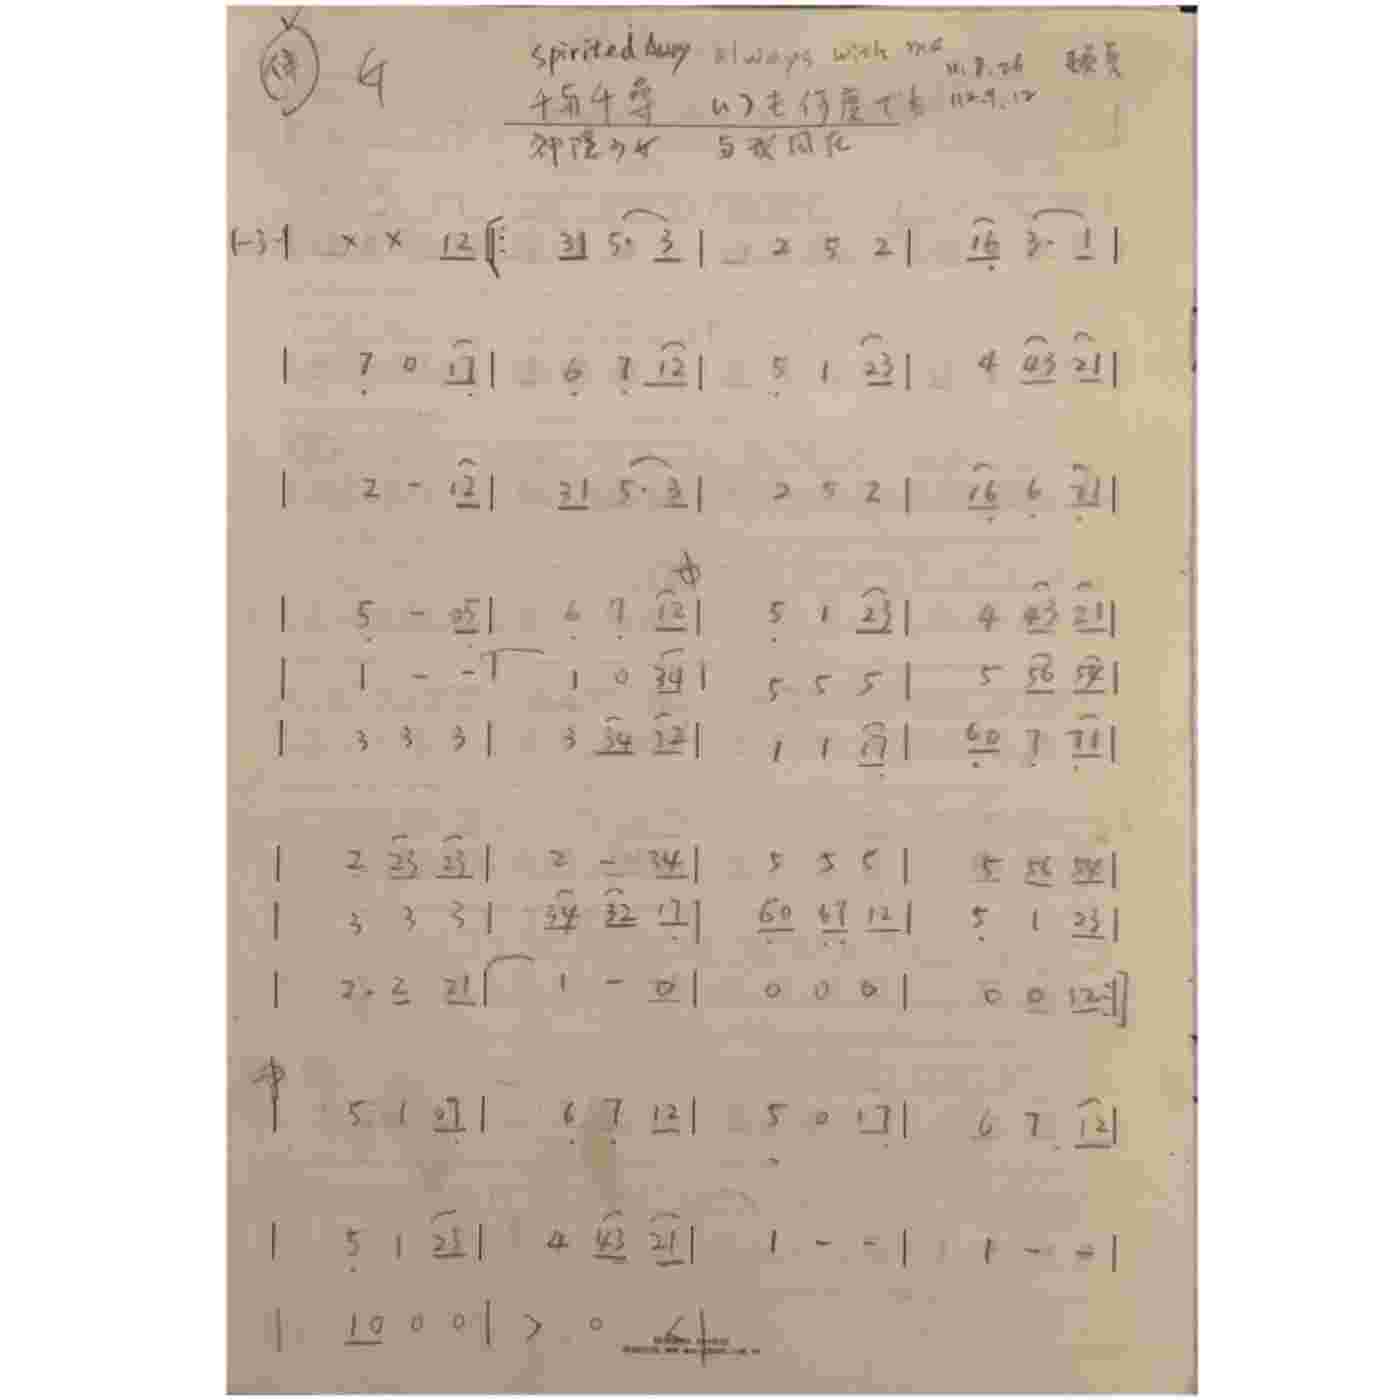 G Spirited Away always with me
千与千尋 いつも何度でも 112.9.12
神隠少女 与我同在
(-3-| x x 12 |: 31 5· 3 | 2 5 2 | 16 3· 1 |
| 7 0 17 | 6 7 12 | 5 1 23 | 4 43 21 |
| 2 - 12 | 31 5· 3 | 2 5 2 | 16 6 71 |
| 5 - 05 | 6 7 12 | 5 1 23 | 4 43 21 |
| 1 - - | 1 0 34 | 5 5 5 | 5 56 54 |
| 3 3 3 | 3 34 32 | 1 1 17 | 60 7 71 |
| 2 23 23 | 2 - 34 | 5 5 5 | 5 56 54 |
| 3 3 3 | 34 32 17 | 60 67 12 | 5 1 23 |
| 2· 2 21 | 1 - 0 | 0 0 0 | 0 0 12 :|
| 5 1 07 | 6 7 12 | 5 0 17 | 6 7 12 |
| 5 1 23 | 4 43 21 | 1 - - | 1 - - |
| 10 0 0 | > 0